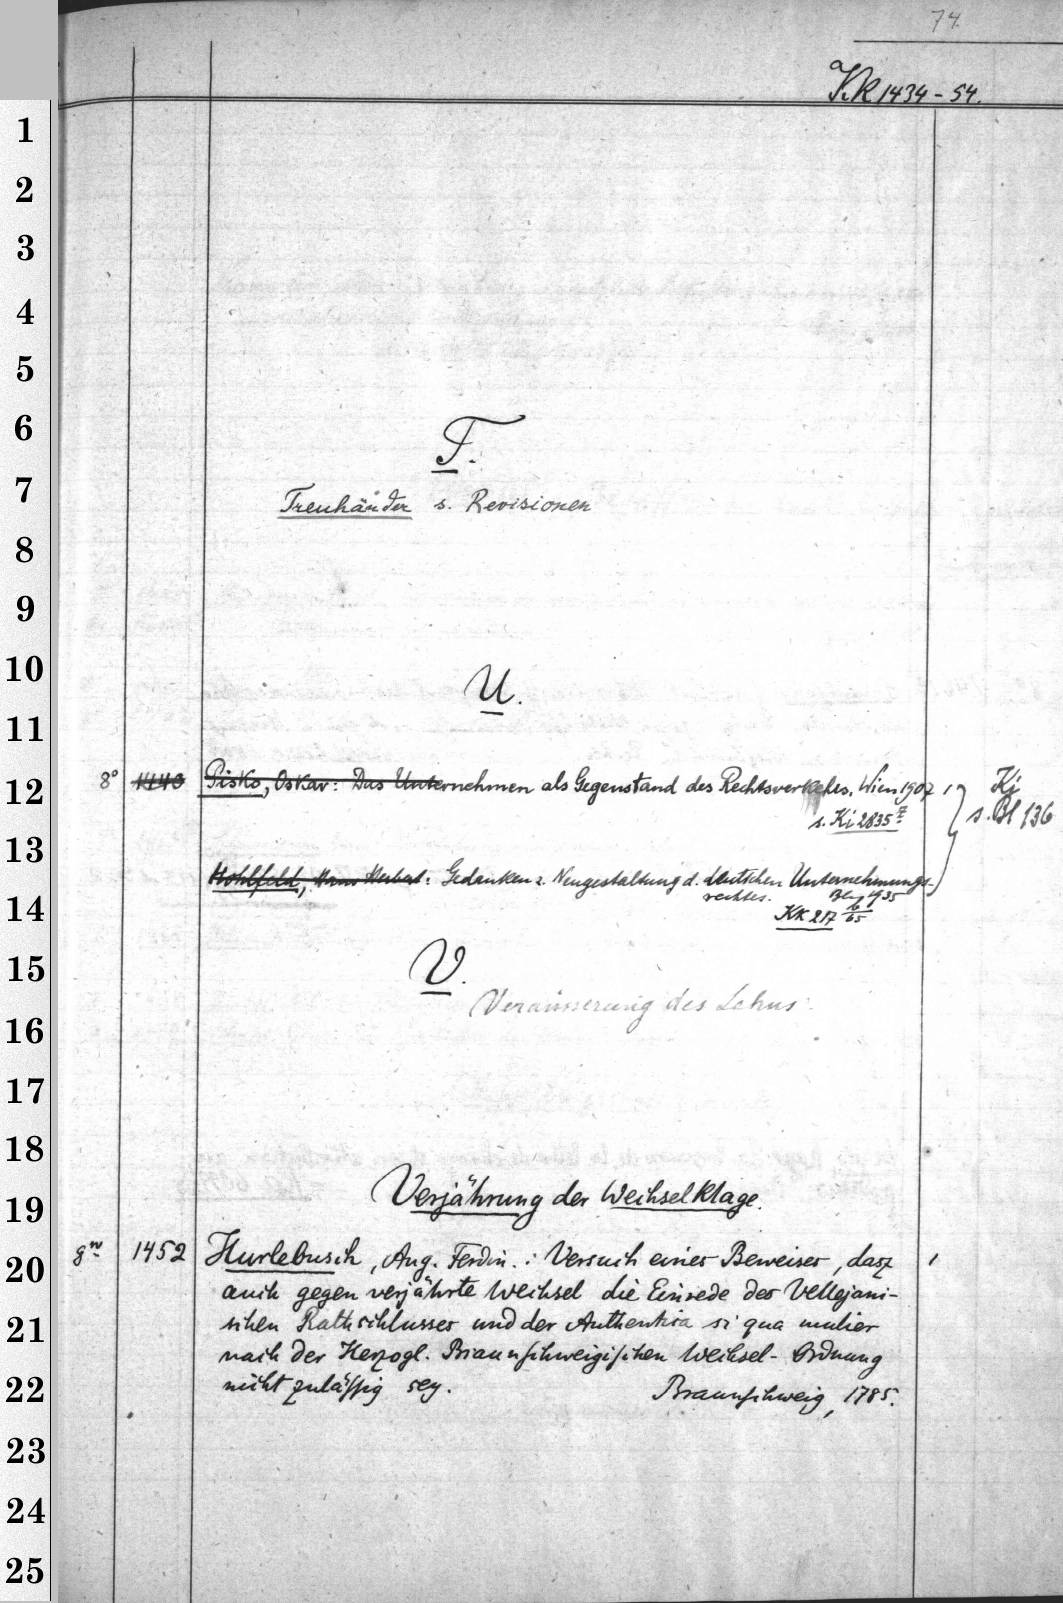 74.
Kk 1434-54.
1
2
3
4
5
6
T.
7
Treuhänder s. Revisionen
8
9
10
U.
11
12
8° 1440 Pisko, Oskar: Das Unternehmen als Gegenstand des Rechtsverkehrs. Wien 1907 1 Kj
s. Ki 2835 s. Bl 136
13
Hohlfeld, Hans Herbert: Gedanken z. Neugestaltung d. deutschen Unternehmungs-
rechtes. 1935
14
Kk 217 6/65
15
V.
16
Veräusserung des Lehns.
17
18
19
Verjährung der Wechselklage.
20
8° 1452 Hurlebusch, Aug. Ferdin.: Versuch eines Beweises, dasz 1
auch gegen verjährte Wechsel die Einrede des Vellejani-
21
schen Rathschlusses und der Authentica si qua mulier
nach der Herzogl. Braunschweigischen Wechsel-Ordnung
22
nicht zulässig sey. Braunschweig, 1785.
23
24
25